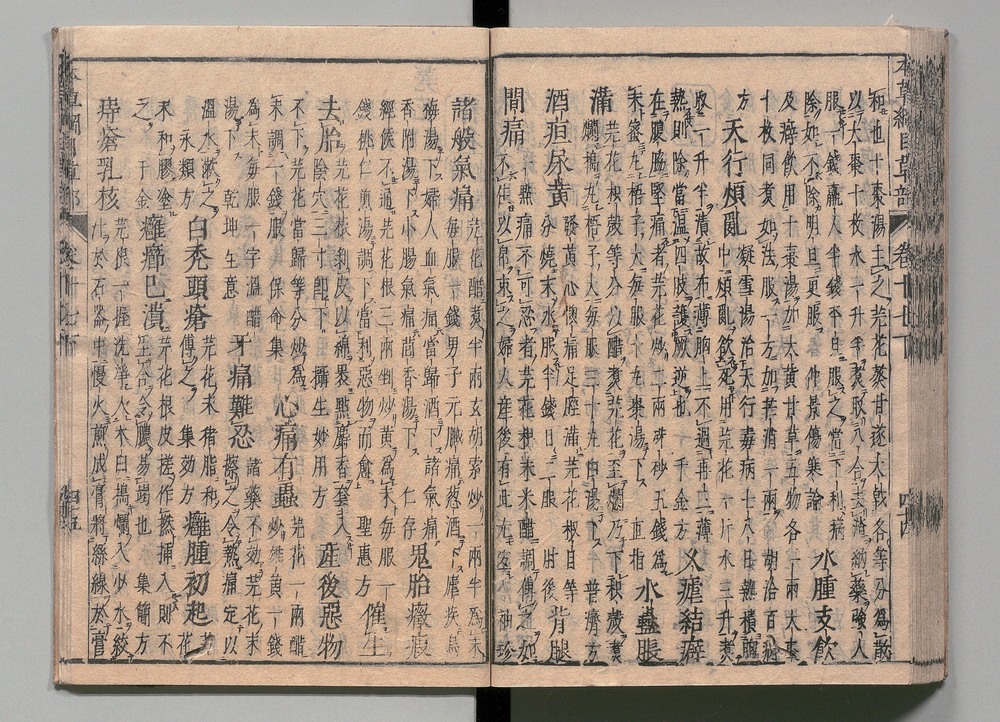 和也十棗湯主之芫花蒸甘遂大戟各等分為散
以大棗十枚水一升半煮取八合去滓納藥強人
服一錢羸人半錢平旦服之當下利病
除如不除明旦更服 仲景傷寒論 水腫支飲
及澼飲用十棗湯加大黃甘草五物各一兩大棗
十枚同煮如法服一方加芒消一兩 胡洽百病
方 天行煩亂 凝雪湯治天行毒病七八日熱積胸
中煩亂欲死用芫花一斤水三升煮
取一升半漬故布薄胸上不過再三薄
熱則除當溫四肢護厥逆也 千金方 久瘧結癖
在腹脇堅痛者芫花炒二兩硃砂五錢為
末蜜丸梧子大每服十丸棗湯下 直指 水蠱脹
滿 芫花枳殼等分以醋煮芫花至爛乃下枳殼煮
爛擣丸梧子大每服三十丸白湯下 普濟方
酒疸尿黃 發黃心懊痛足脛滿芫花椒目等
分燒末水服半錢日二服 肘後 背腿
間痛 一點痛不可忍者芫花根末米醋調傅之如
不住以帛束之婦人產後有此尤宜 袖珍
諸般氣痛 芫花醋煮半兩玄胡索炒一兩半為末
每服一錢男子元臟痛葱酒下瘧疾烏
梅湯下婦人血氣痛當歸酒下諸氣痛
香附湯下小腸氣痛茴香湯下 仁存 鬼胎癥瘕
經候不通芫花根三兩剉炒黃為末每服一
錢桃仁煎湯調下當利惡物而愈 聖惠方 催生
去胎 芫花根剝皮以綿裹點麝香套入
陰穴三寸即下 攝生妙用方 產後惡物
不下芫花當歸等分炒為
末調一錢服 保命集 心痛有蟲 芫花一兩醋
炒雄黃一錢
為末每服一字溫醋
湯下 乾坤生意 牙痛難忍 諸藥不効芫花末
擦之令熱痛定以
溫水漱之 永類方 白禿頭瘡 芫花末猪脂和
傅之 集効方 癰腫初起 芫花
末和膠塗
之 千金 癰癤已潰 芫花根皮搓作撚插入則不
生合令膿易竭也 集簡方
痔瘡乳核 芫根一握洗淨入木臼擣爛入少水絞
汁於石器中慢火煎成膏將絲線於膏